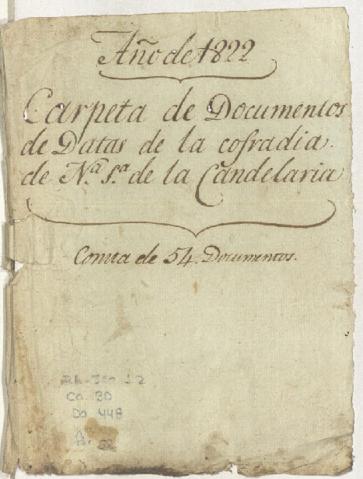 Año de 1822
Carpeta de Documentos
de Datas de la cofradia
de N.ª S.ª de la Candelaria
Consta de 54. Documentos.
Ca. 30
Do. 448